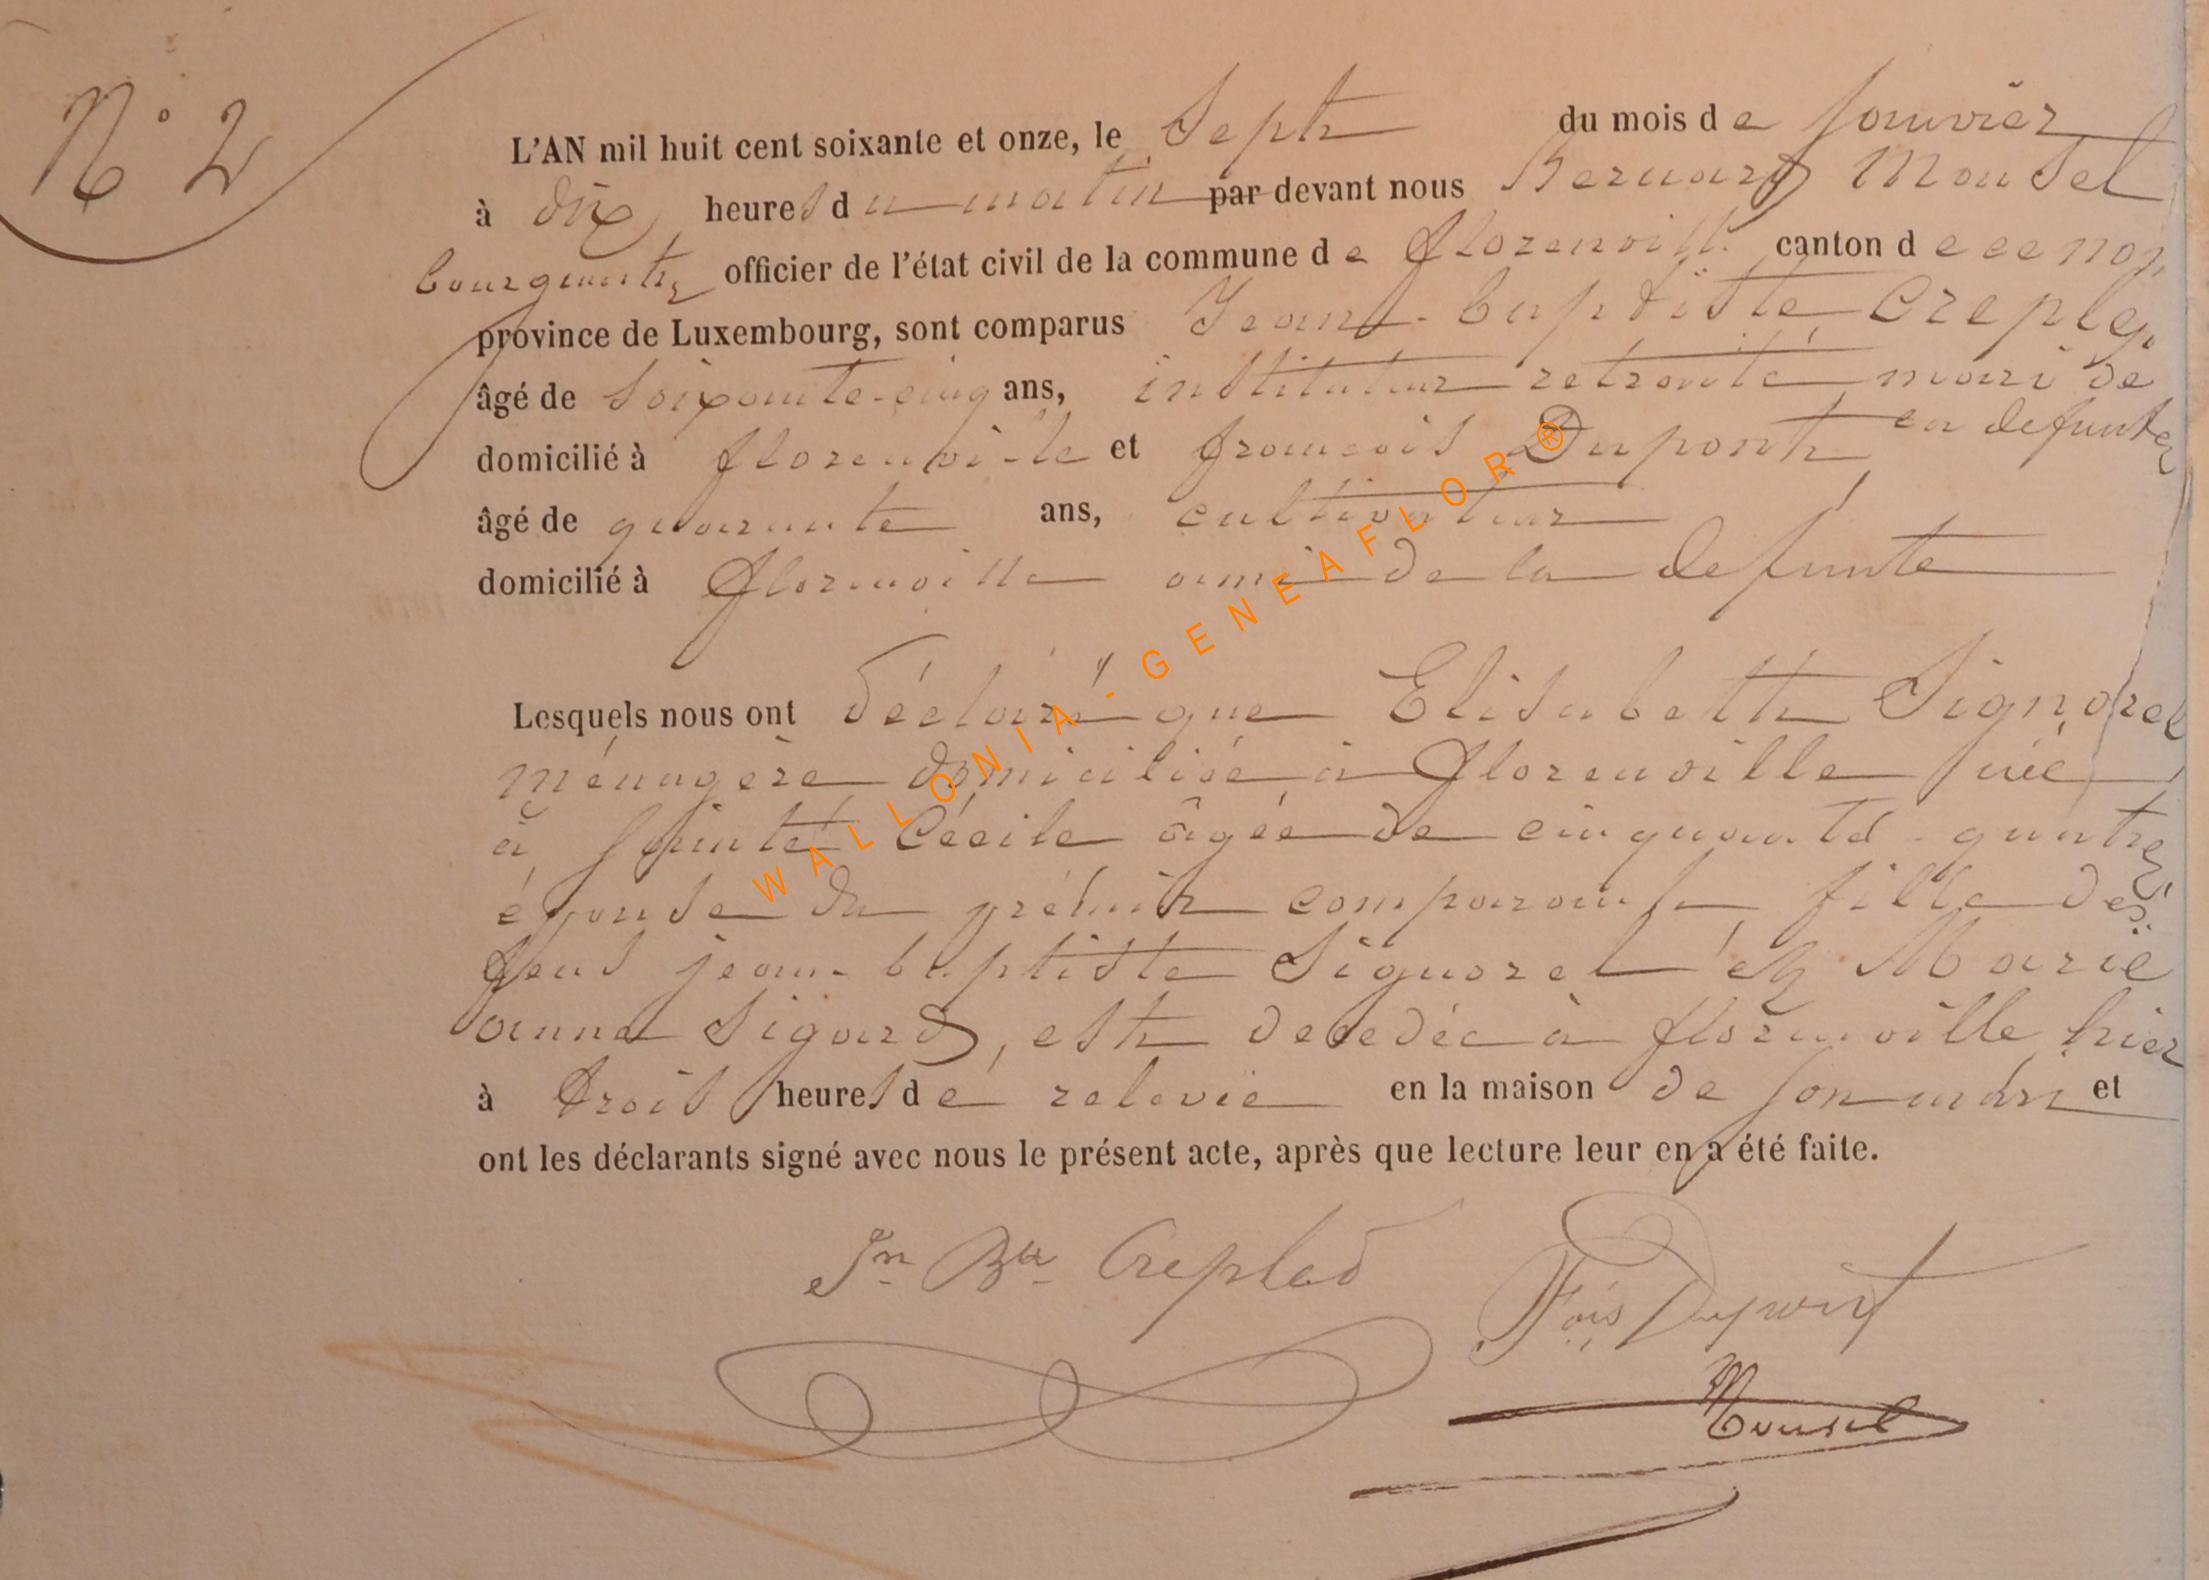 N° 2
L'AN mil huit cent soixante et onze, le Sept du mois de Janvier
à dix heures du matin par devant nous Bernard Mousel
bourgmestre officier de l'état civil de la commune de florenville canton de ce nom,
province de Luxembourg, sont comparus Jean-baptiste Creplez,
âgé de Soixante-cinq ans, instituteur retraité mari de
domicilié à florenville et françois Dupont la defunte
âgé de quarante ans, cultivateur
domicilié à florenville ami de la defunte
Lesquels nous ont déclaré que Elisabeth Signorel
ménagère domiciliée à florenville née
à Sainte Cécile âgée de cinquante-quatre
épouse du prémier comparant fille des
feus jean-baptiste Signorel et Marie
anne Sigard, est decedée à florenville hier
à trois heures de relevée en la maison de son mari et
ont les déclarants signé avec nous le présent acte, après que lecture leur en a été faite.
Jn Bte Fois Dupont
Mousel
WALLONIA - GENEAFLOR®